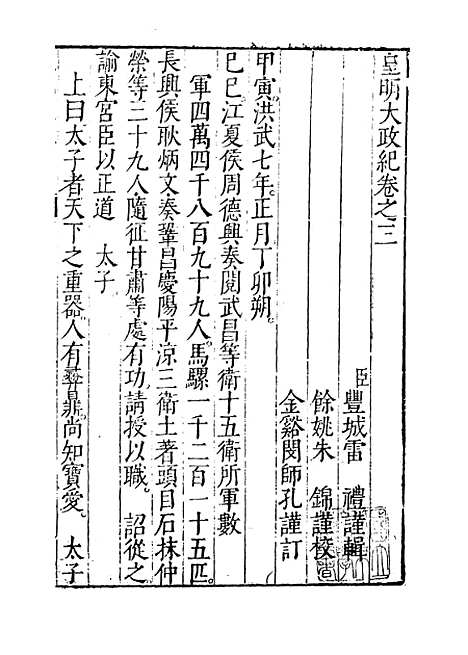 皇明大政紀卷之三
臣豐城雷　禮謹輯
餘姚朱　錦謹校
金谿閔師孔謹訂
甲寅洪武七年。正月丁卯朔。
己巳江夏侯周德興奏閱武昌等衛十五衛所軍數
軍四萬四千八百九十九人。馬騾一千二百一十五匹。
長興侯耿炳文奏鞏昌慶陽平涼三衛土著頭目石抹仲
榮等三十九人隨征甘肅等處有功請授以職。　詔從之
諭東宮臣以正道　太子
上曰太子者天下之重器。人有彝鼎尚知寶愛。　太子